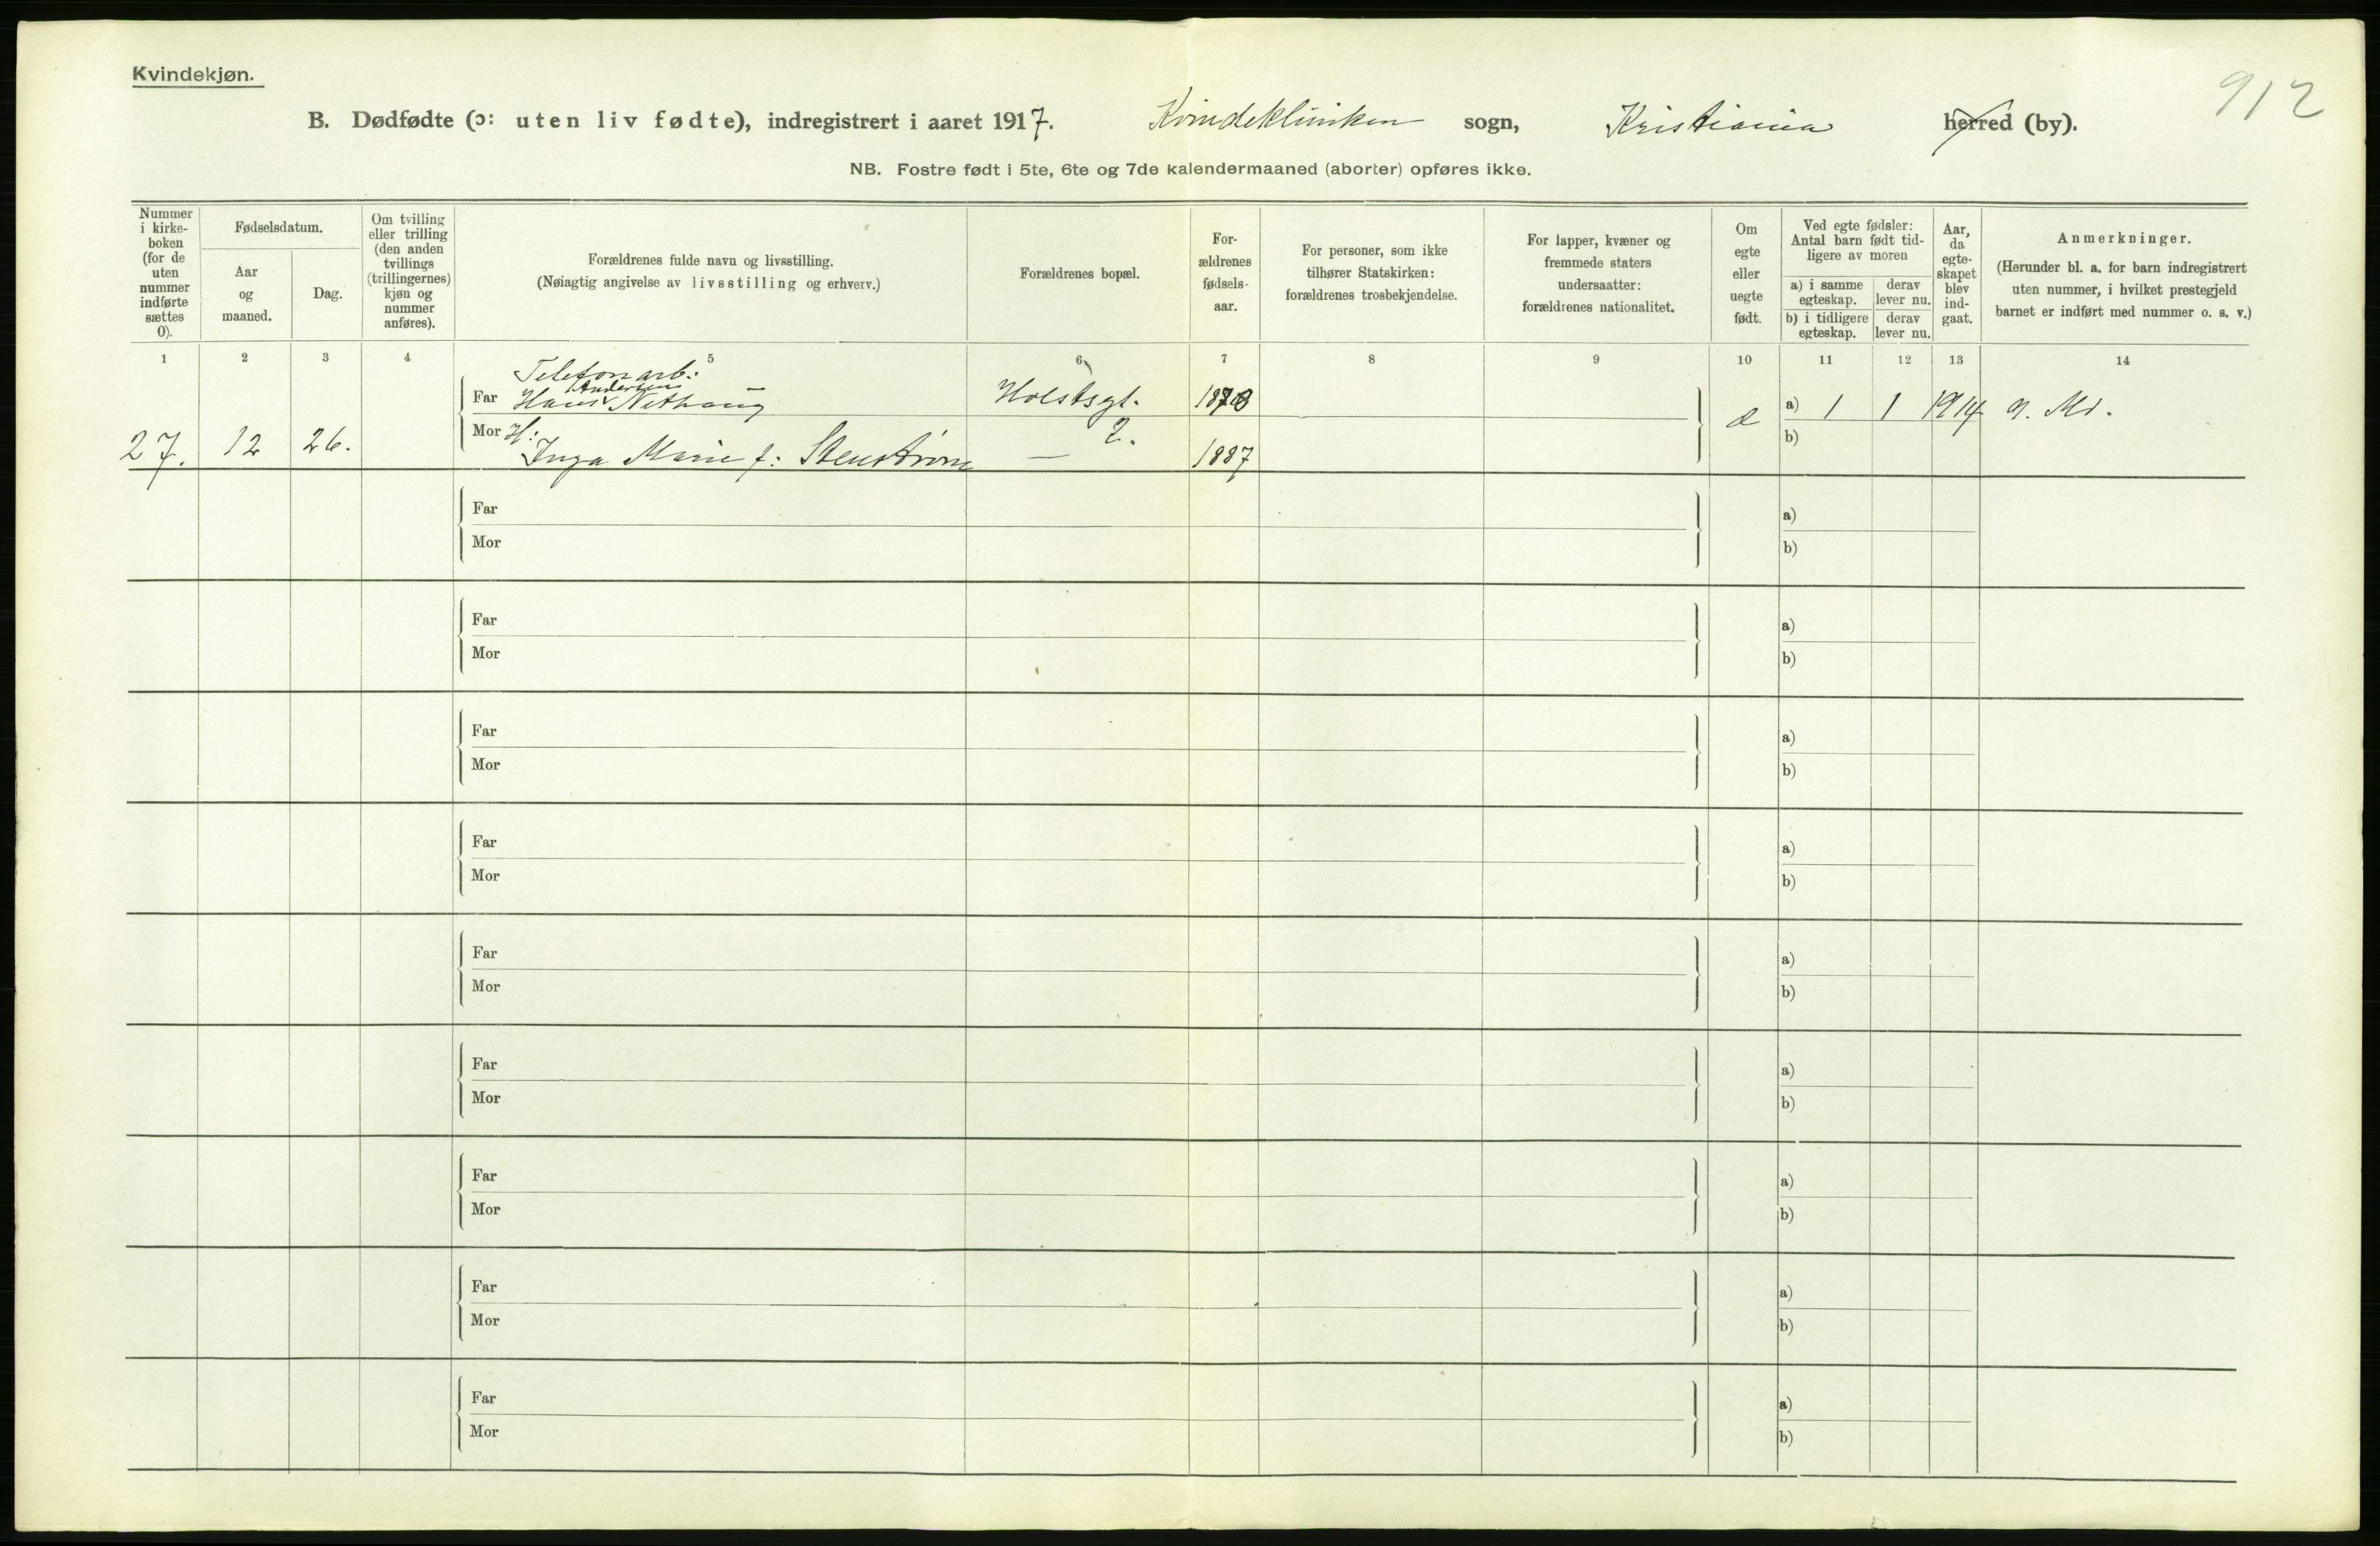 Kvindekjøn.
912
B. Dødfødte (ɔ: uten liv fødte), indregistrert i aaret 1917. Kvindekliniken sogn, Kristiania herred (by).
NB. Fostre født i 5te, 6te og 7de kalendermaaned (aborter) opføres ikke.
Nummer i kirkeboken (for de uten nummer indførte sættes 0).
Fødselsdatum.
Aar og maaned.
Dag.
Om tvilling eller trilling (den anden tvillings (trillingernes) kjøn og nummer anføres).
Forældrenes fulde navn og livsstilling.
(Nøiagtig angivelse av livsstilling og erhverv.)
Forældrenes bopæl.
Forældrenes fødselsaar.
For personer, som ikke tilhører Statskirken: forældrenes trosbekjendelse.
For lapper, kvæner og fremmede staters undersaatter: forældrenes nationalitet.
Om egte eller uegte født.
Ved egte fødsler: Antal barn født tidligere av moren
a) i samme egteskap.
derav lever nu.
b) i tidligere egteskap.
derav lever nu.
Aar, da egteskapet blev indgaat.
Anmerkninger.
(Herunder bl. a. for barn indregistrert uten nummer, i hvilket prestegjeld barnet er indført med nummer o. s. v.)
1 2 3 4 5 6 7 8 9 10 11 12 13 14
Telefonarb:
Andersen
Far Hans Holstsgt. 1878 a) 1 1 1914
Mor H: 2. b)
27. 12 26. Inga Marie f: Stenstrøm — 1887
Far a)
Mor b)
Far a)
Mor b)
Far a)
Mor b)
Far a)
Mor b)
Far a)
Mor b)
Far a)
Mor b)
Far a)
Mor b)
Far a)
Mor b)
Far a)
Mor b)